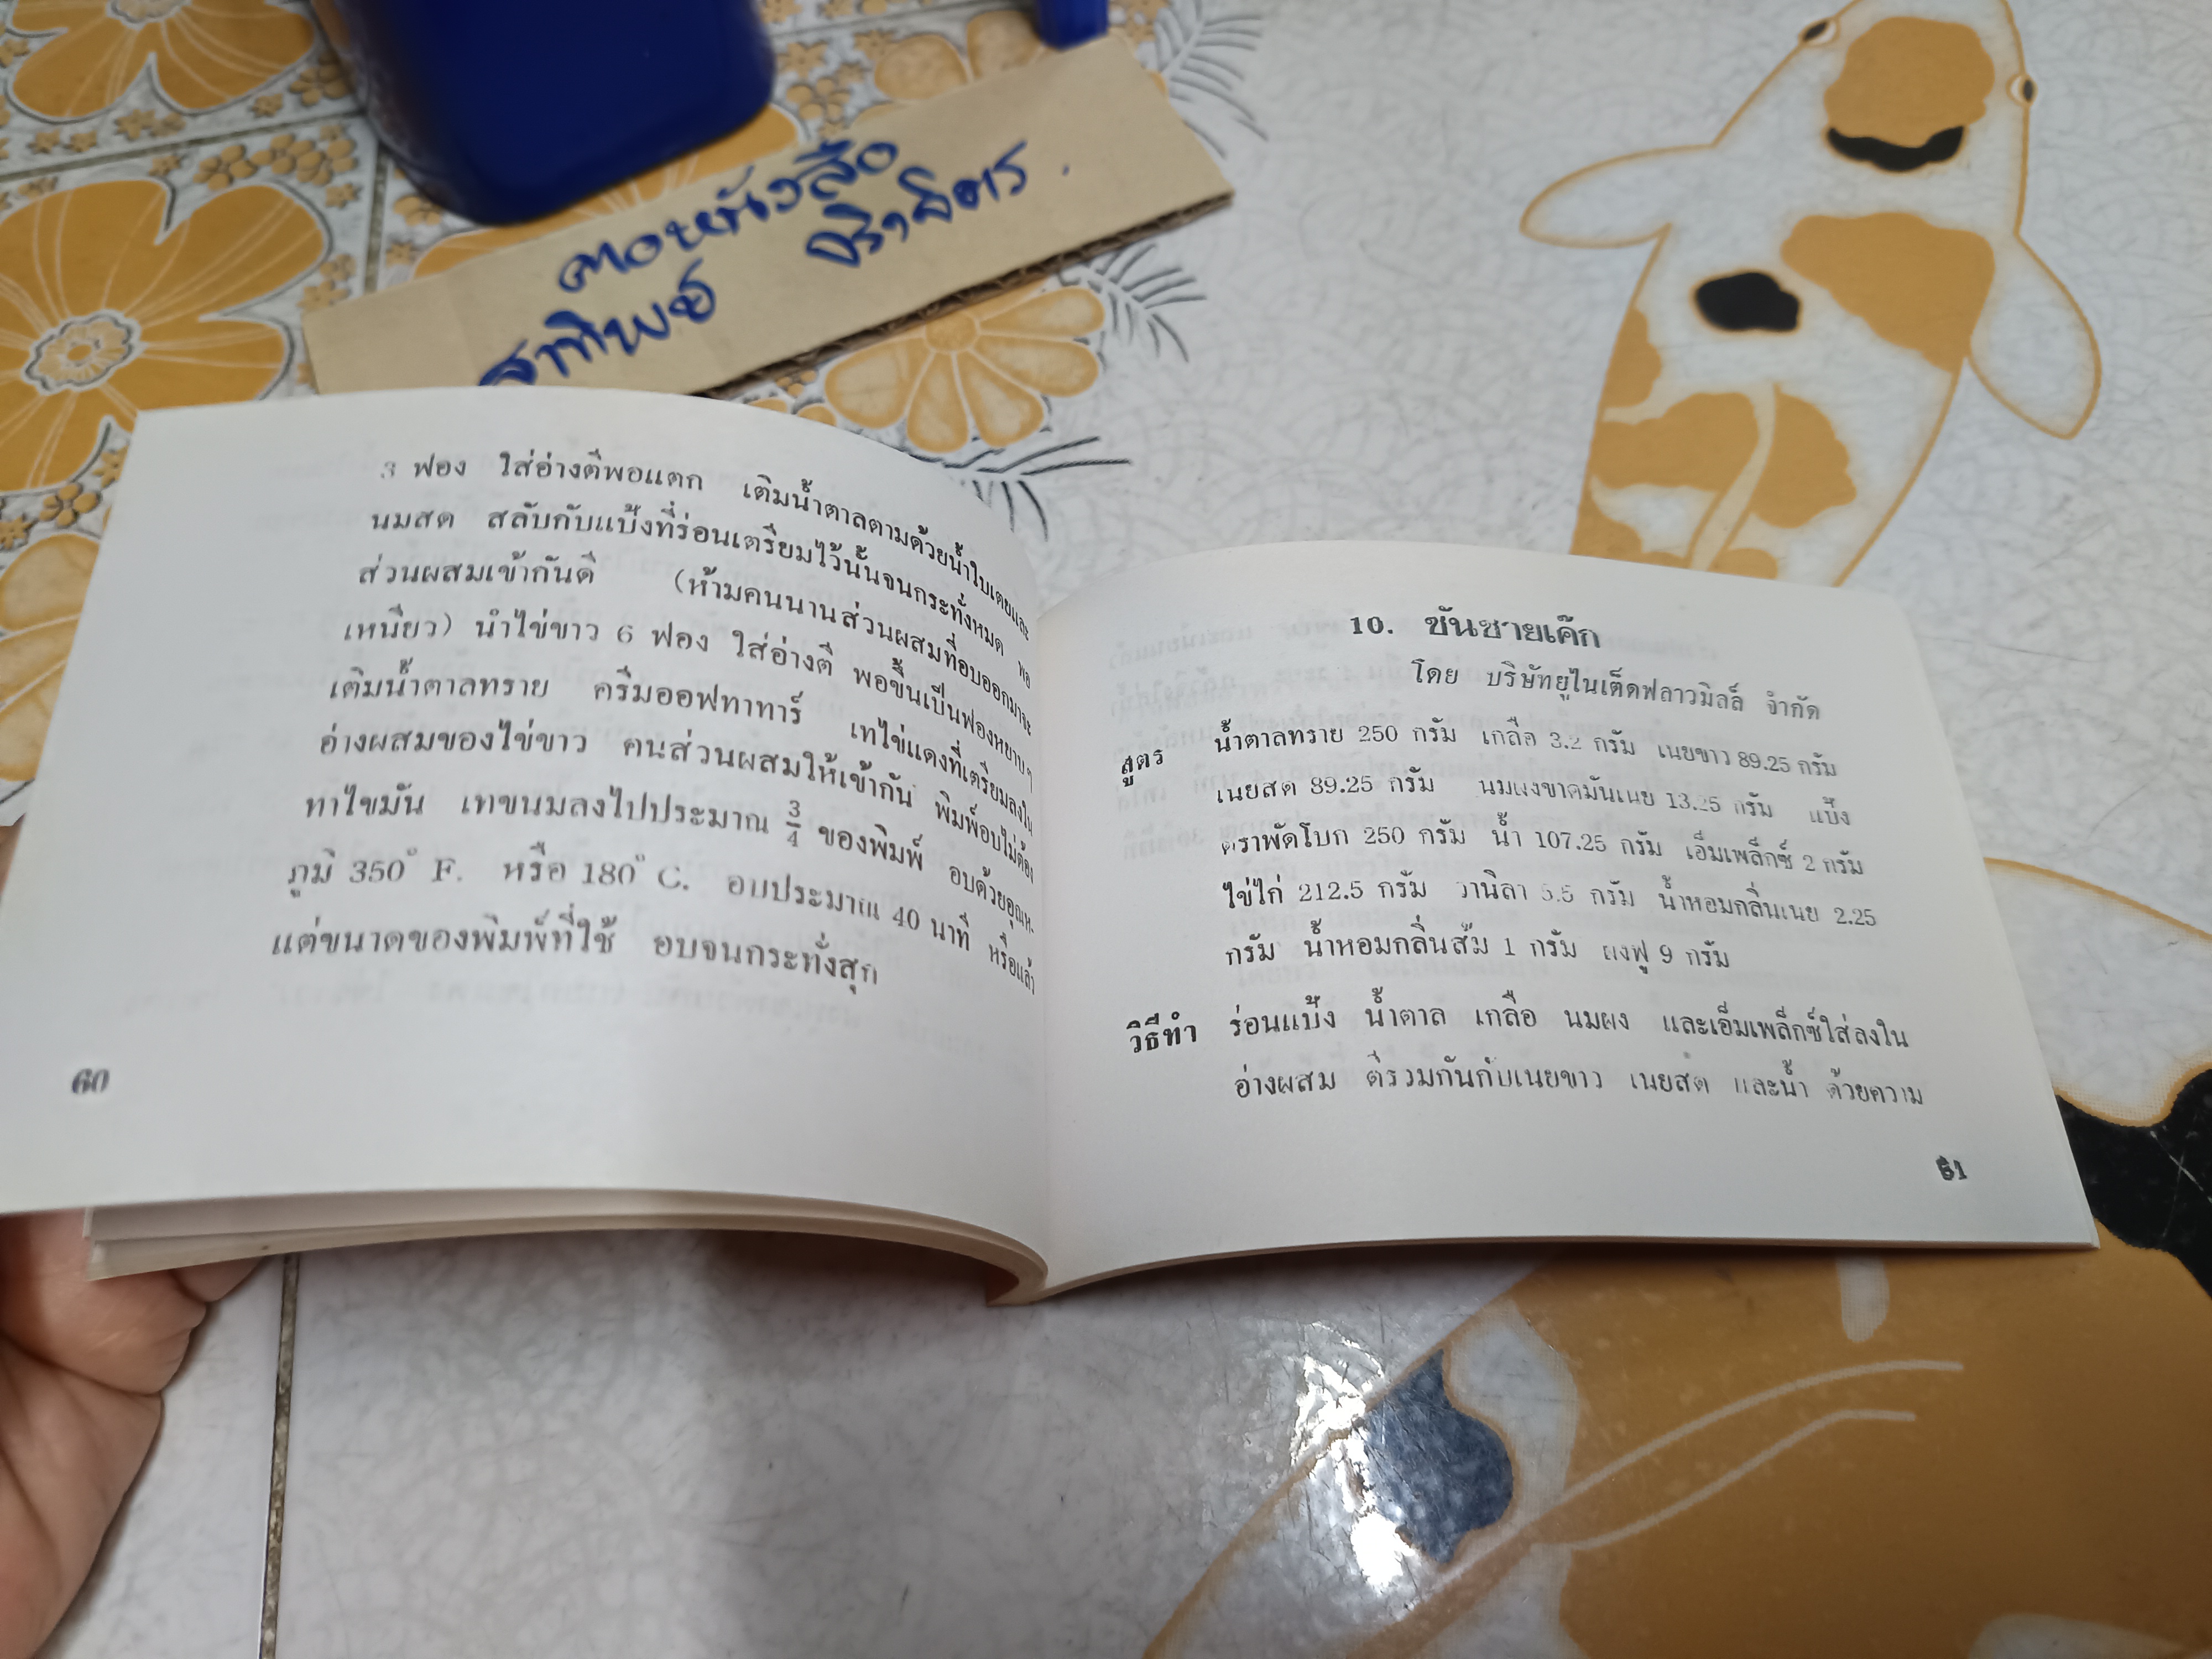 คอหนังสือ
สาทิพย์ ศิราจิตร
3 ฟอง ใส่อ่างตีพอแตก เติมน้ำตาลตามด้วยน้ำใบเตยและ
นมสด สลับกับแป้งที่ร่อนเตรียมไว้นั้นจนกระทั่งหมด พอ
ส่วนผสมเข้ากันดี (ห้ามคนนานส่วนผสมที่อบออกมาจะ
เหนียว) นำไข่ขาว 6 ฟอง ใส่อ่างตี พอขึ้นเป็นฟองหยาบๆ
เติมน้ำตาลทราย ครีมออฟทาทาร์ เทไข่แดงที่เตรียมลงใน
อ่างผสมของไข่ขาว คนส่วนผสมให้เข้ากัน พิมพ์อบไม่ต้อง
ทาไขมัน เทขนมลงไปประมาณ 3/4 ของพิมพ์ อบด้วยอุณห-
ภูมิ 350° F. หรือ 180° C. อบประมาณ 40 นาที หรือแล้ว
แต่ขนาดของพิมพ์ที่ใช้ อบจนกระทั่งสุก
60
10. ซันชายเค๊ก
โดย บริษัทยูไนเต็ดฟลาวมิลล์ จำกัด
สูตร น้ำตาลทราย 250 กรัม เกลือ 3.2 กรัม เนยขาว 89.25 กรัม
เนยสด 89.25 กรัม นมผงขาดมันเนย 13.25 กรัม แป้ง
ตราพัดโบก 250 กรัม น้ำ 107.25 กรัม เอ็มเพล็กซ์ 2 กรัม
ไข่ไก่ 212.5 กรัม วานิลา 5.5 กรัม น้ำหอมกลิ่นเนย 2.25
กรัม น้ำหอมกลิ่นส้ม 1 กรัม ผงฟู 9 กรัม
วิธีทำ ร่อนแป้ง น้ำตาล เกลือ นมผง และเอ็มเพล็กซ์ใส่ลงใน
อ่างผสม ตีรวมกันกับเนยขาว เนยสด และน้ำ ด้วยความ
61